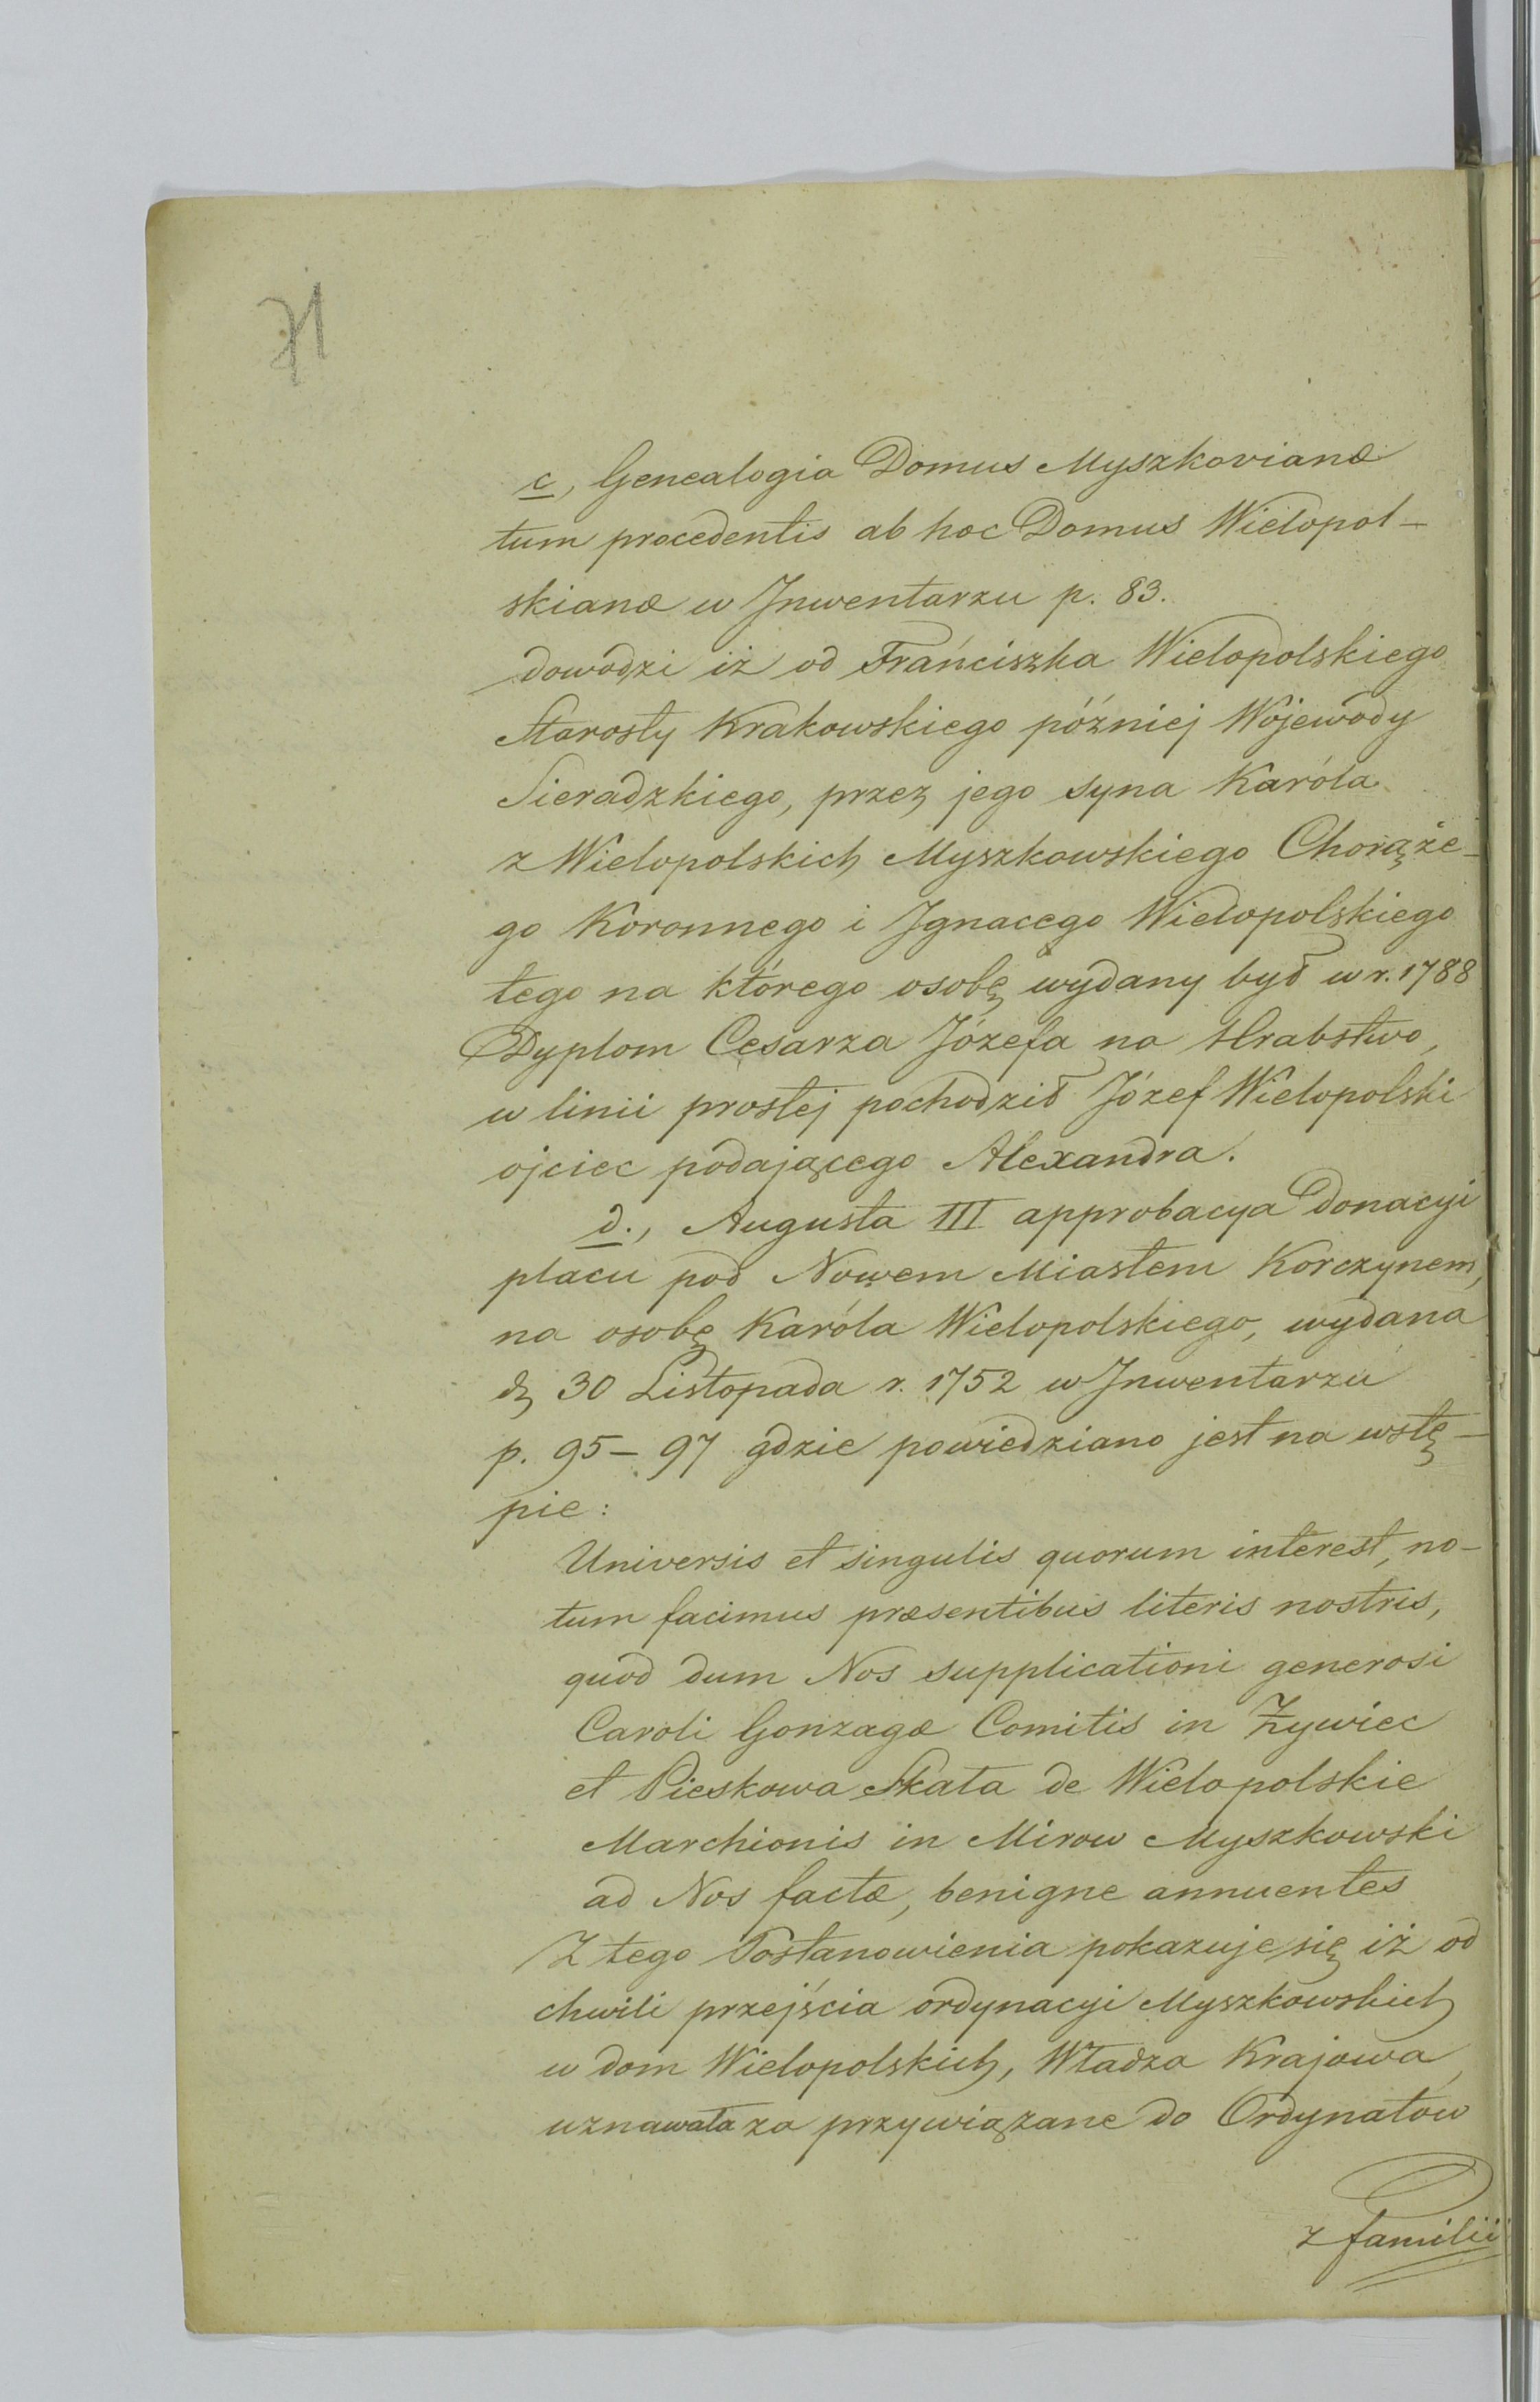 71
c, Genealogia Domus Myszkovianæ
tum procedentis ab hoc Domus Wielopol-
skianæ w Inwentarzu p. 83.
dowodzi iż od Frańciszka Wielopolskiego
Starosty Krakowskiego później Wojewody
Sieradzkiego, przez jego syna Karóla
z Wielopolskich Myszkowskiego Chorąże-
go Koronnego i Ignacego Wielopolskiego
tego na którego osobę wydany był w r. 1788
Dyplom Cesarza Józefa na Hrabstwo,
w linii prostej pochodził Józef Wielopolski
ojciec podającego Alexandra.
d., Augusta III approbacya Donacyi
placu pod Nowem Miastem Korczynem,
na osobę Karóla Wielopolskiego, wydana
dz 30 Listopada r. 1752 w Inwentarzu
p. 95 – 97 gdzie powiedziano jest na wstę-
pie:
Universis et singulis quorum interest, no-
tum facimus præsentibus literis nostris,
quod dum Nos supplicationi generosi
Caroli Gonzagæ Comitis in Żywiec
et Pieskowa Skała de Wielopolskie
Marchionis in Mirow Myszkowski
ad Nos factæ, benigne annuentes
Z tego Postanowienia pokazuje się iż od
chwili przejścia ordynacyi Myszkowskich
w dom Wielopolskich, Władza Krajowa,
uznawała za przywiązane do Ordynatów
z familii